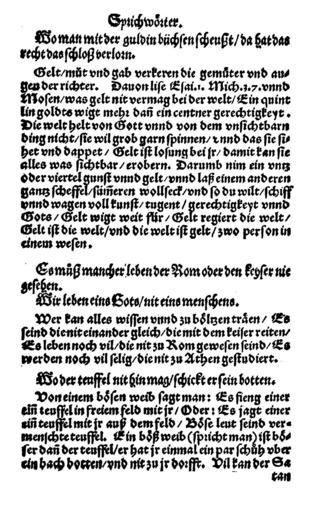 Sprichwörter.
Wo man mit der guldin büchsen scheußt/da hat das
recht das schloß verlorn.
Gelt/müt vnd gab verkeren die gemüter vnd au-
gen der richter. Dauon lise Esai.1. Mich.3.7.vnnd
Mosen/was gelt nit vermag bei der welt/Ein quint
lin goldts wigt mehr dañ ein centner gerechtigkeyt.
Die welt helt von Gott vnnd von dem vnsichtbarn
ding nicht/sie wil grob garn spinnen/vnnd das sie si-
het vnd dappet/Gelt ist losung bei jr/damit kan sie
alles was sichtbar/erobern. Darumb nim ein vntz
oder viertel gunst vnnd gelt/vnnd laß einem anderen
gantz scheffel/sum̃eren wollseck/vnd so du wilt/schiff
vnnd wagen voll kunst/tugent/gerechtigkeyt vnnd
Gots/Gelt wigt weit für/Gelt regiert die welt/
Gelt ist die welt/vnd die welt ist gelt/zwo person in
einem wesen.
Es müß mancher leben der Rom oder den keyser nie
gesehen.
Wir leben eins Gots/nit eins menschens.
Wer kan alles wissen vnnd zu böltzen träen/Es
seind die nit einander gleich/die mit dem keiser reiten/
Es leben noch vil/die nit zu Rom gewesen seind/Es
werden noch vil selig/die nit zu Athen gestudiert.
Wo der teuffel nit hin mag/schickt er sein botten.
Von einem bösen weib sagt man: Es fieng einer
ein̄ teuffel in freiem feld mit jr/Oder: Es jagt einer
ein̄ teuffel mit jr auß dem feld/Böse leut seind ver-
menschte teuffel. Ein böß weib (spricht man) ist bö-
ser dañ der teuffel/er hat jr einmal ein par schüh vber
ein bach botten/vnd nit zu jr dorfft. Vil kan der Sa
tan